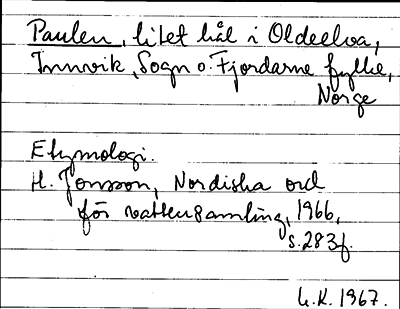 Paulen, litet hål i Oldeelva,
Innvik, Sogn o. Fjordarne fylke,
Norge
Etymologi.
H. Jonsson, Nordiska ord
för vattensamling, 1966,
s. 283f.
G.K. 1967.